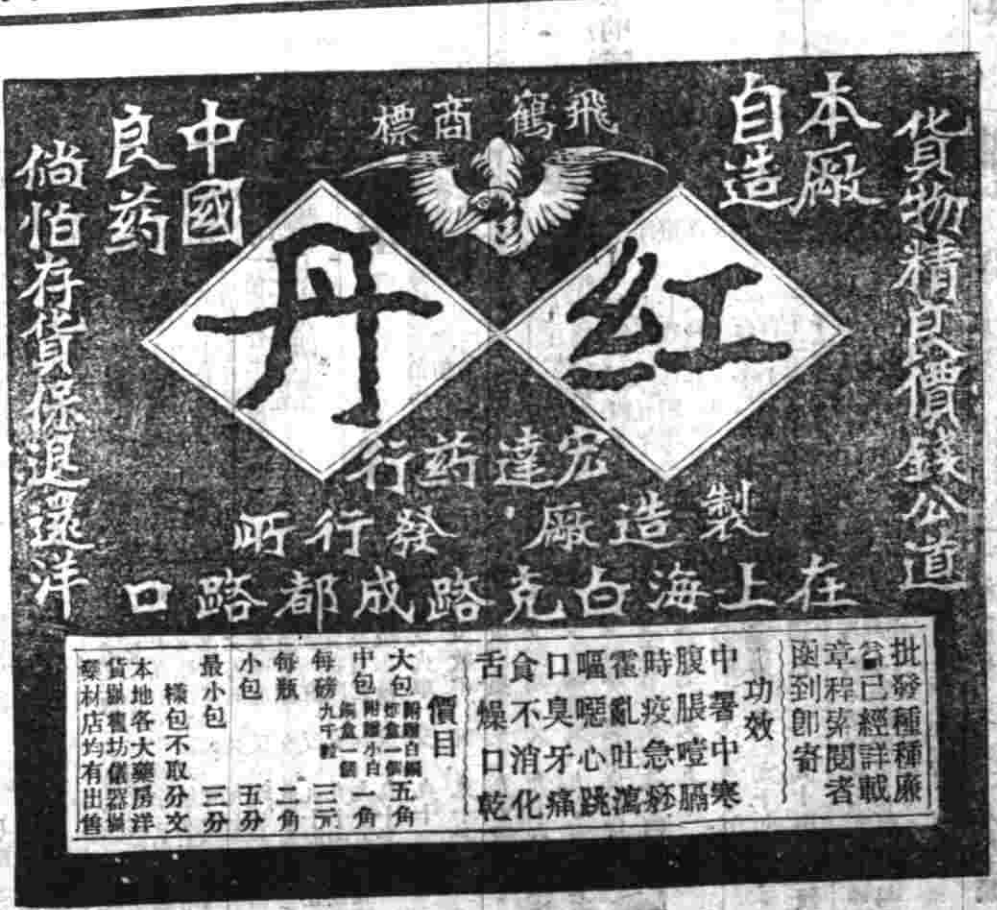 貨物精良價錢公道
本廠
自造
飛鶴商標
中國
良药
倘怕存貨保退還洋
紅丹
宏達药行
製造廠發行所
在上海白克路成都路口
批發種種廉
益已經詳載
章程索閱者
函到卽寄
功效
中暑中寒
腹脹噎膈
時疫急痧
霍亂吐瀉
嘔噁心跳
口臭牙痛
食不消化
舌燥口乾
價目
大包 附贈白銅炸盒一個 五角
中包 附贈小白銅盒一個 一角
每磅 九千粒 三元
每瓶 二角
小包 五分
最小包 三分
樣包不取分文
本地各大藥房洋
貨號舊坊儀器號
藥材店均有出售